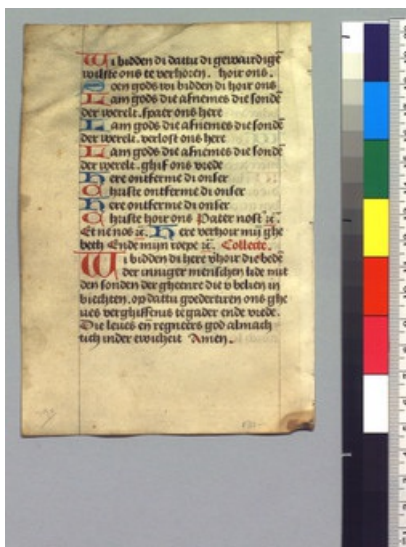 Wi bidden di dattu di gewairdigē
wilste ons te verhoren. hoir ons.
Soen gods wi bidden di hoir ons
Lam gods die afnemes die sondē
der werelt. spaer ons here
Lam gods die afnemes die sondē
der werelt. verlost ons here
Lam gods die afnemes die sondē
der werelt. ghif ons vrede
Here ontferme di onser
Christe ontferme di onser
Here ontferme di onser
Christe hoir ons Pater nost
Et ne nos Here verhoir mijn ghe
beth Ende mijn roepe Collecte.
Wi bidden di here vhoir die bedē
der inniger menschen lide mit
den sonden der gheenre die v belien in
biechten. op dattu goedertiren ons ghe
ues verghiffenis tegader ende vrede.
Die leues eñ regneers god almach
tich inder ewicheit Amen.